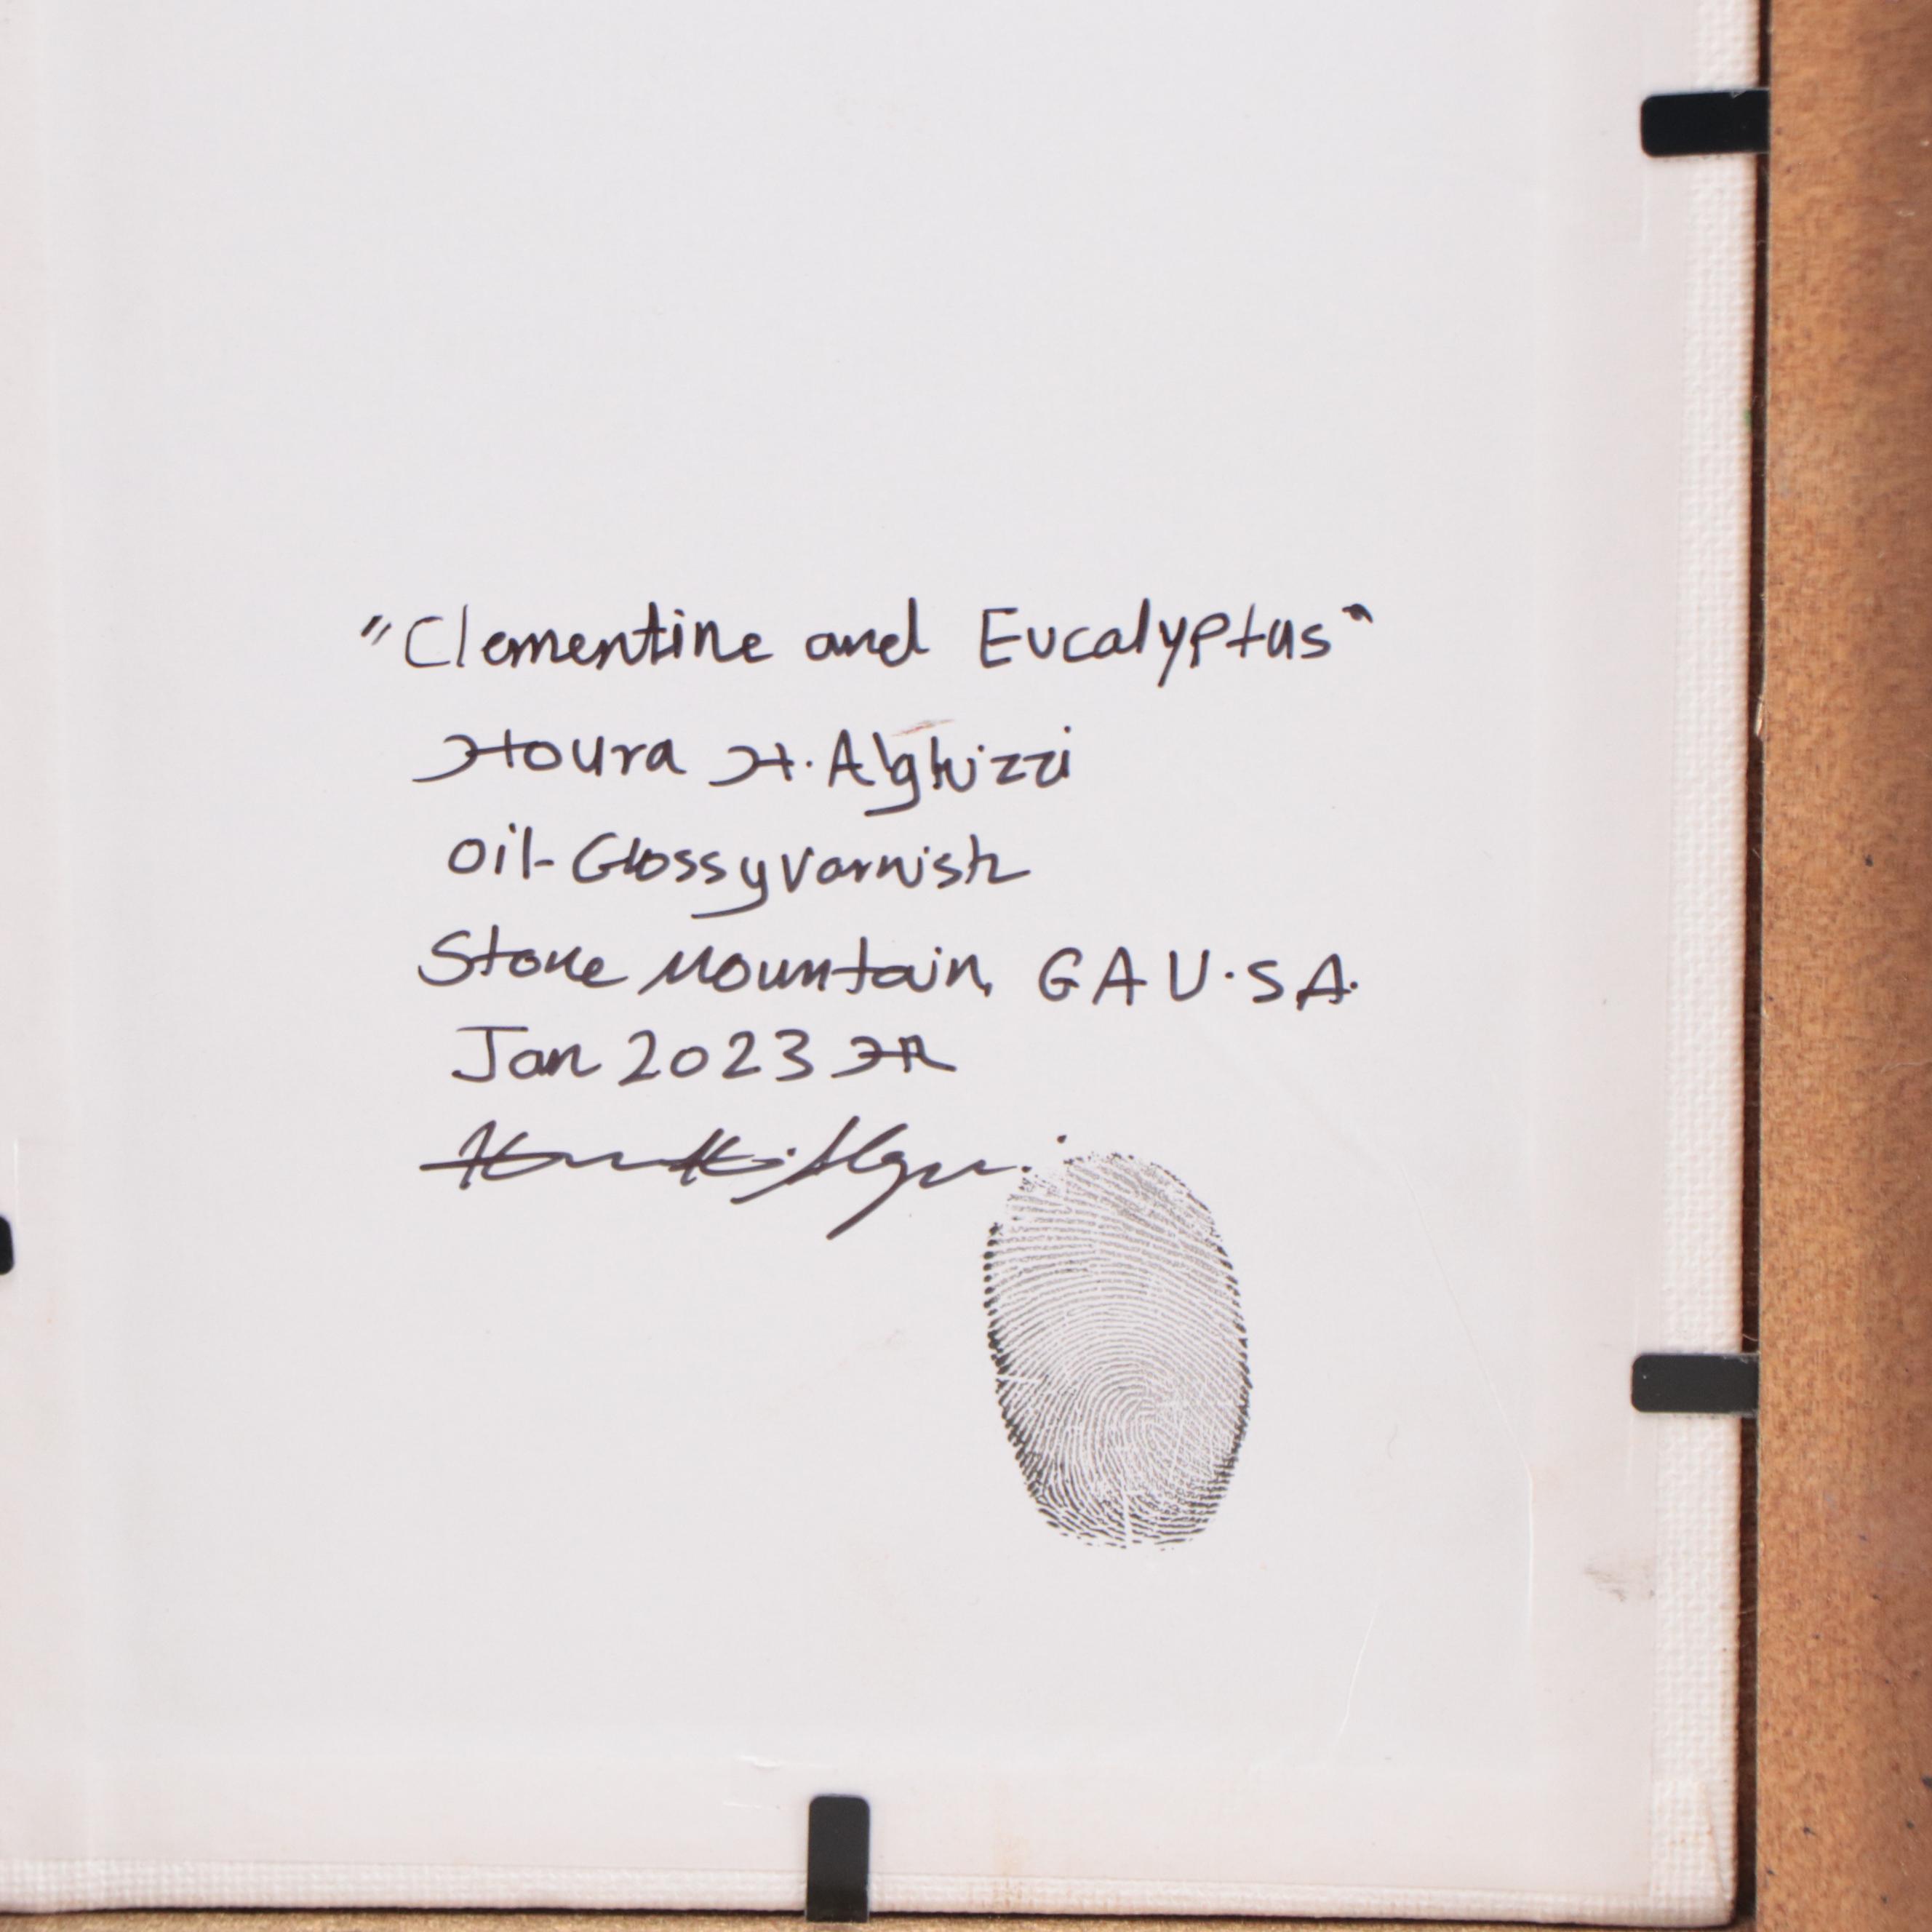 "Clementine and Eucalyptus"
Houra H. Alghizzi
oil-Glossy varnish
Stone Mountain, GA U.S.A.
Jan 2023